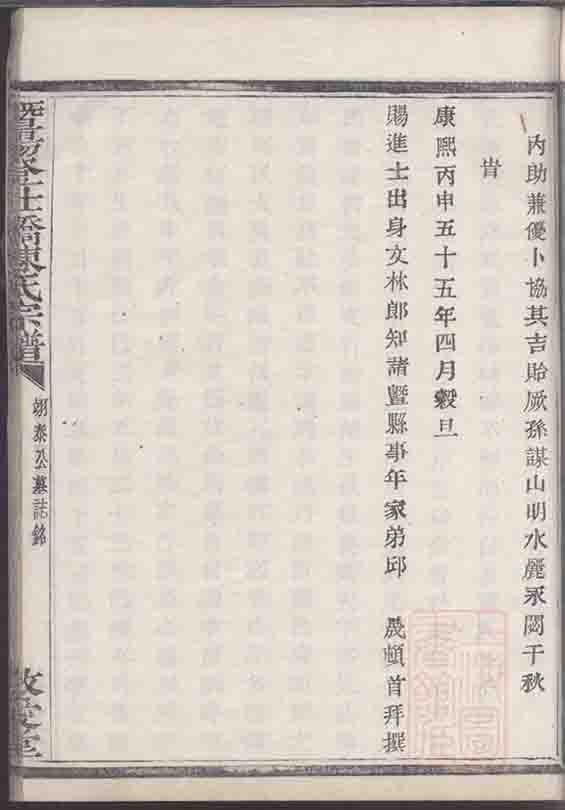 內助兼優卜協其吉貽厥孫謀山明水麗永閟千秋
旹
康熙丙申五十五年四月穀旦
賜進士出身文林郎知諸暨縣事年家弟邱　晟頓首拜撰
暨陽登仕橋陳氏宗譜
翊泰公墓誌銘